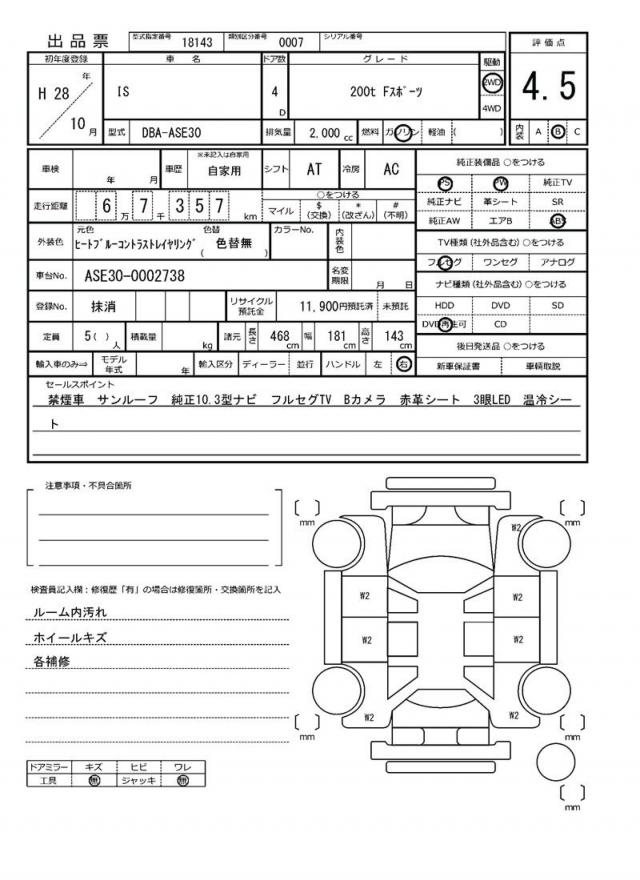 出品票 型式指定番号 18143 類別区分番号 0007 シリアル番号
初年度登録 車名 ドア数 グレード 駆動 評価点
H 28 年 IS 4 D 200t Fスポーツ 2WD 4WD 4.5
10 月 型式 DBA-ASE30 排気量 2,000 cc 燃料 ガソリン 軽油 ( ) 内装 A B C
車検 年 月 車歴 ※未記入は自家用 自家用 シフト AT 冷房 AC
走行距離 6 万 7 千 3 5 7 km
○をつける
マイル $ (交換) * (改ざん) # (不明)
外装色 元色 ヒートブルーコントラストレイヤリング 色替 ( 色替無 ) カラーNo. 内装色
車台No. ASE30-0002738 名変期限 月 日
登録No. 抹消 リサイクル預託金 11,900円預託済 未預託
定員 5( ) 人 積載量 kg 諸元 長さ 468 cm 幅 181 cm 高さ 143 cm
輸入車のみ⇒ モデル年式 年 輸入区分 ディーラー 並行 ハンドル 左 右
純正装備品 ○をつける
PS PW 純正TV
純正ナビ 革シート SR
純正AW エアB ABS
TV種類(社外品含む) ○をつける
フルセグ ワンセグ アナログ
ナビ種類(社外品含む) ○をつける
HDD DVD SD
DVD再生可 CD
後日発送品 ○をつける
新車保証書 車輌取説
セールスポイント
禁煙車 サンルーフ 純正10.3型ナビ フルセグTV Bカメラ 赤革シート 3眼LED 温冷シー
ト
注意事項・不具合箇所
検査員記入欄：修復歴「有」の場合は修復箇所・交換箇所を記入
ルーム内汚れ
ホイールキズ
各補修
ドアミラー キズ ヒビ ワレ
工具 無 ジャッキ 無
[ ] mm [ ] mm
W2
W2 W2
W2 W2
W2 W2
[ ] mm [ ] mm
[ ] mm